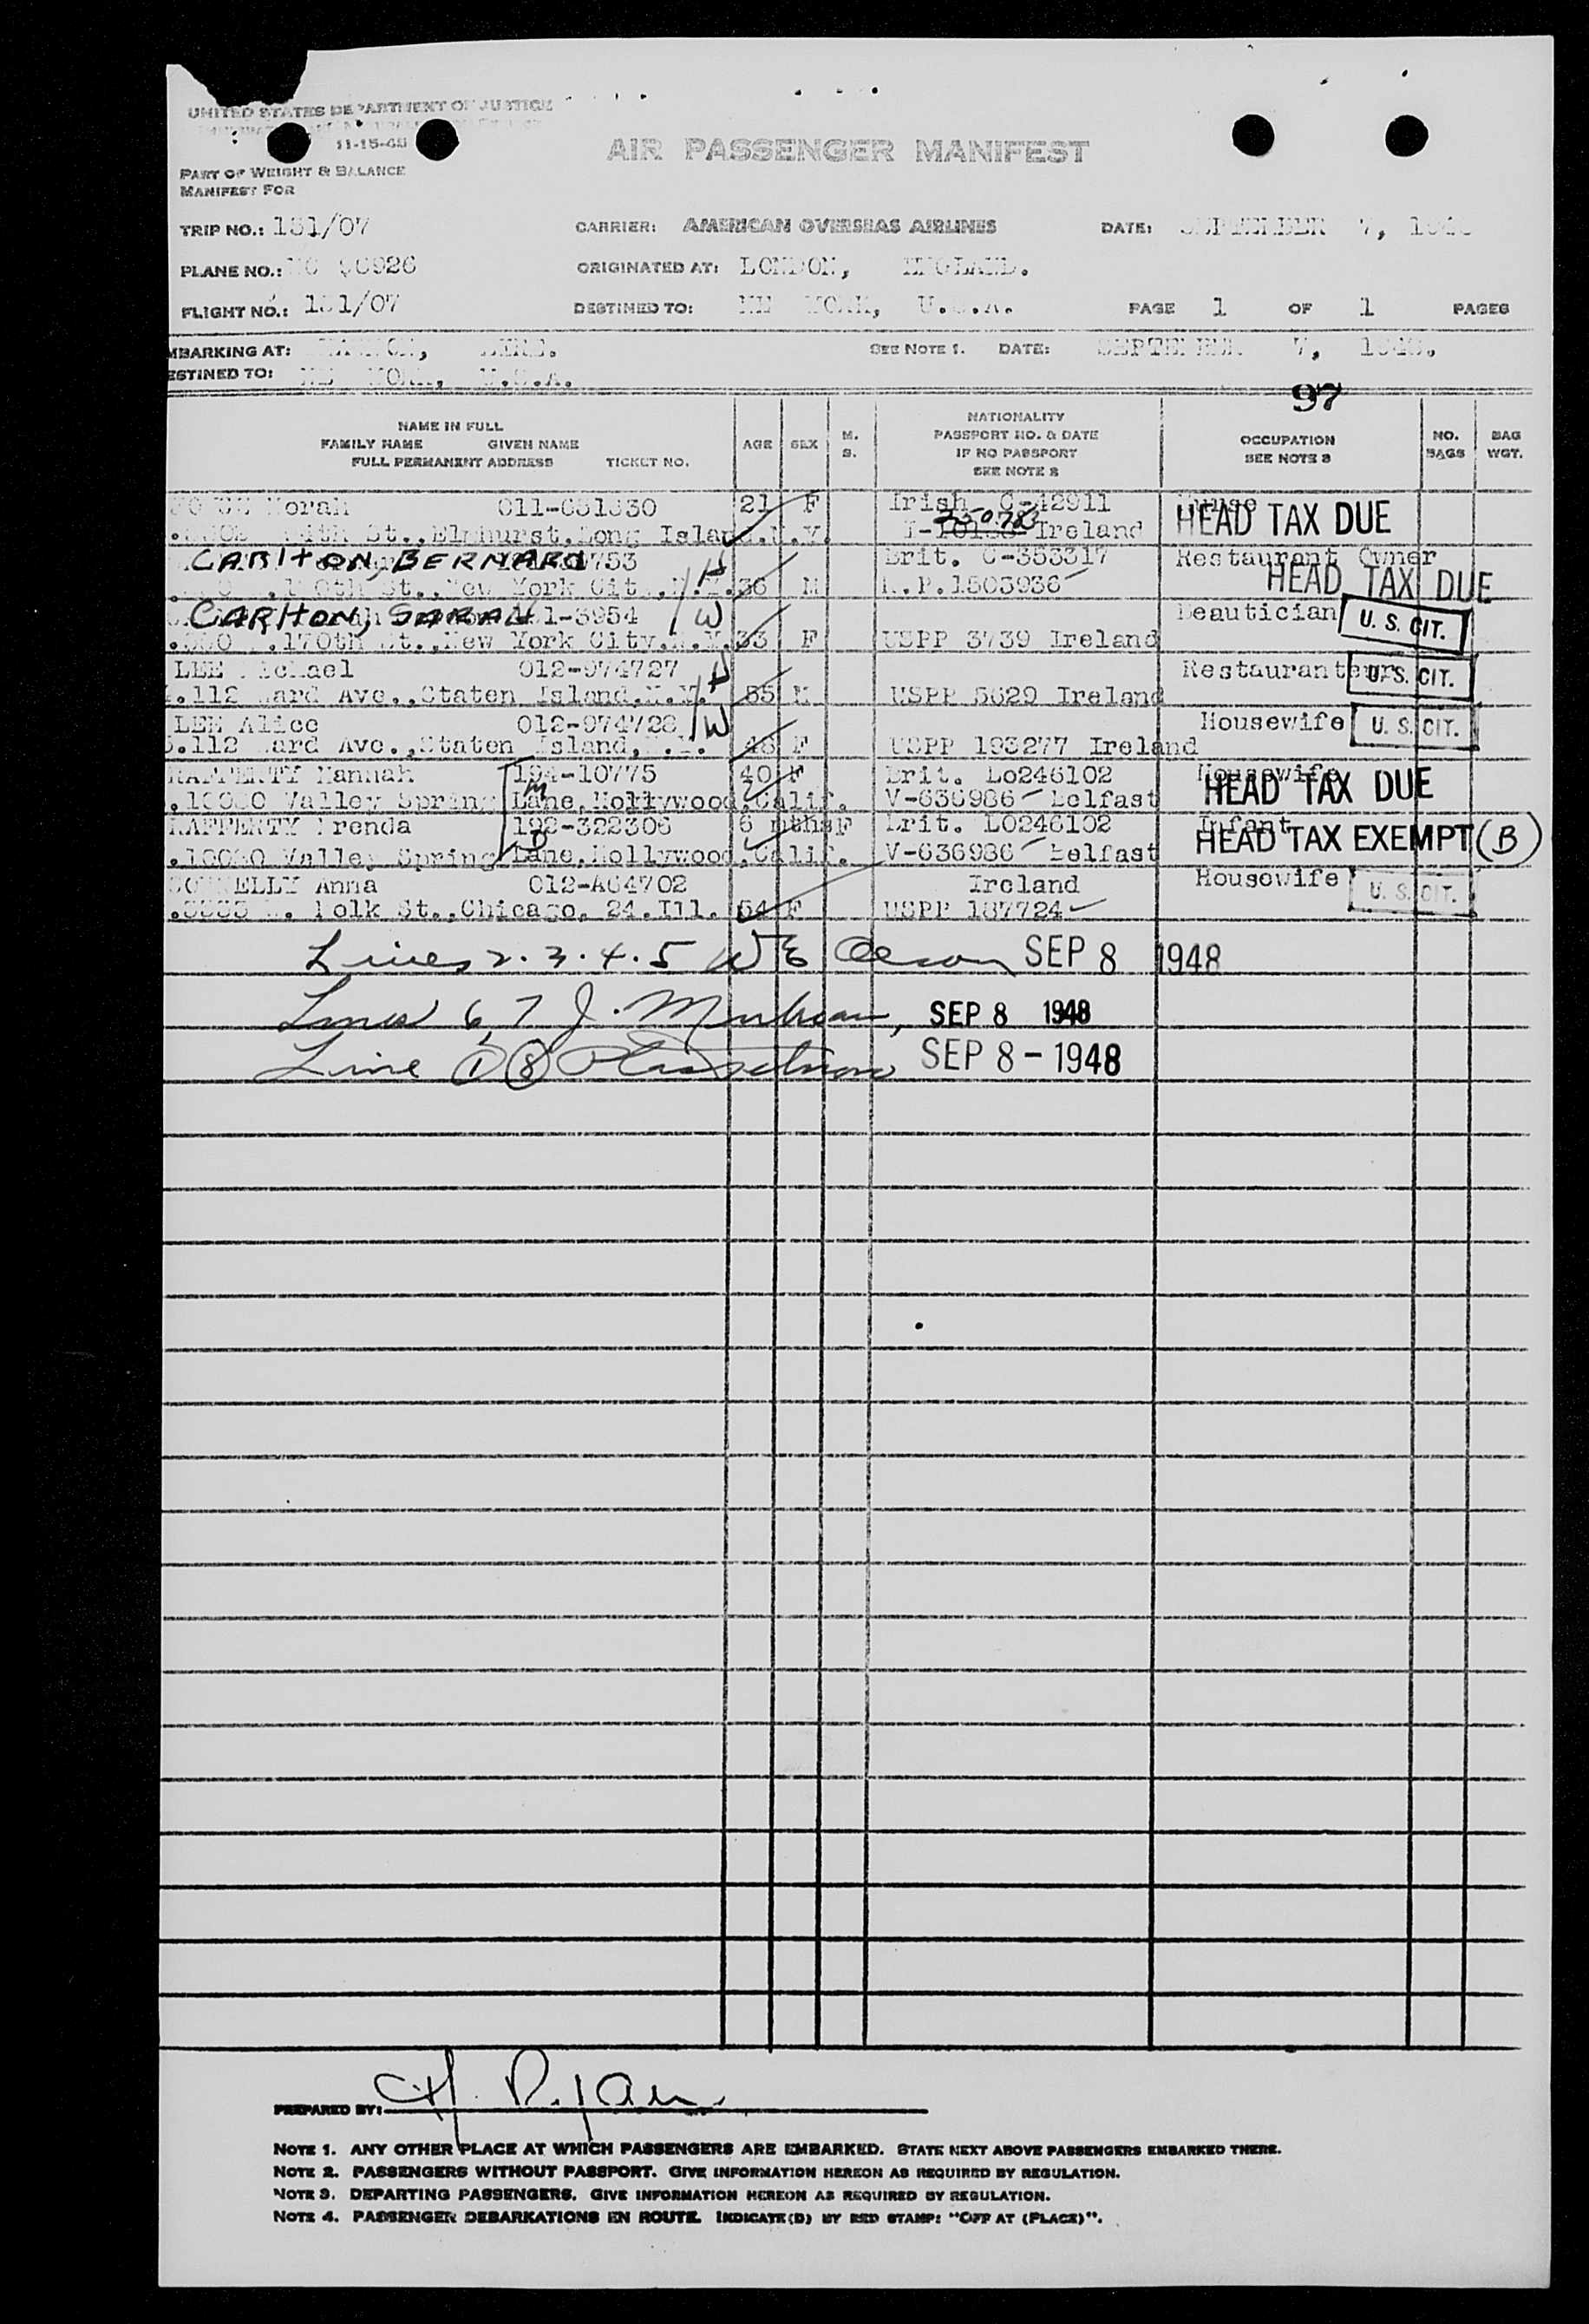 UNITED STATES DEPARTMENT OF JUSTICE
11-15-45
AIR PASSENGER MANIFEST
PART OF WEIGHT & BALANCE
MANIFEST FOR
TRIP NO.: 131/07 CARRIER: AMERICAN OVERSEAS AIRLINES DATE: SEPTEMBER 7, 1948
PLANE NO.: NC 90926 ORIGINATED AT: LONDON, ENGLAND.
FLIGHT NO.: 131/07 DESTINED TO: NEW YORK, U.S.A. PAGE 1 OF 1 PAGES
MBARKING AT: SHANNON, EIRE. SEE NOTE 1. DATE: SEPTEMBER 7, 1948.
ESTINED TO: NEW YORK, U.S.A.
97
NAME IN FULL
FAMILY NAME GIVEN NAME
FULL PERMANENT ADDRESS TICKET NO.
AGE SEX M. S.
NATIONALITY
PASSPORT NO. & DATE
IF NO PASSPORT
SEE NOTE 2
OCCUPATION
SEE NOTE 3
NO. BAGS
BAG WGT.
Norah 21 F Irish C-42911 Nurse HEAD TAX DUE
St., Elmhurst, Long Island, N.Y. Ireland
CARLTON, BERNARD Brit. C-353317 Restaurant Owner
St., New York City, N.Y. H 36 M R.P.1503936 HEAD TAX DUE
CARLTON, SARAH 1-3954 W Beautician U. S. CIT.
170th St., New York City, N.Y. 33 F USPP 3739 Ireland
LEE Michael 012-974727 H Restauranteur U. S. CIT.
.112 Ward Ave., Staten Island, N.Y. 55 M USPP 5629 Ireland
LEE Alice 012-974728 W Housewife U. S. CIT.
.112 Ward Ave., Staten Island, N.Y. 48 F USPP 193277 Ireland
RAFFERTY Hannah 194-10775 40 F Brit. Lo246102 Housewife
.10050 Valley Spring Lane, Hollywood, Calif. M V-636986 Belfast HEAD TAX DUE
RAFFERTY Brenda 192-322306 6 mths F Brit. LO246102 Infant
.10050 Valley Spring Lane, Hollywood, Calif. D V-636986 Belfast HEAD TAX EXEMPT (B)
CONNELLY Anna 012-A64702 Ireland Housewife U. S. CIT.
.3333 W. Polk St., Chicago, 24. Ill. 54 F USPP 187724
Lines 2. 3. 4. 5 SEP 8 1948
Lines 6, 7 SEP 8 1948
Line 1 8 SEP 8 - 1948
PREPARED BY:
NOTE 1. ANY OTHER PLACE AT WHICH PASSENGERS ARE EMBARKED. STATE NEXT ABOVE PASSENGERS EMBARKED THERE.
NOTE 2. PASSENGERS WITHOUT PASSPORT. GIVE INFORMATION HEREON AS REQUIRED BY REGULATION.
NOTE 3. DEPARTING PASSENGERS. GIVE INFORMATION HEREON AS REQUIRED BY REGULATION.
NOTE 4. PASSENGER DEBARKATIONS EN ROUTE. INDICATE(D) BY RED STAMP: "OFF AT (PLACE)".